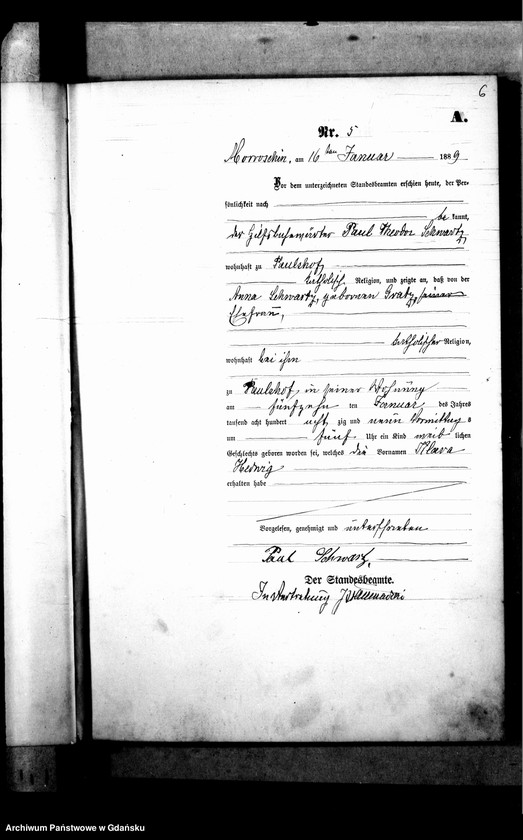 6
A.
Nr. 5
Morroschin, am 16ten Januar 1889
Vor dem unterzeichneten Standesbeamten erschien heute, der Per-
sönlichkeit nach
be kannt,
der Hilfsbahnwärter Paul Theodor Schwartz
wohnhaft zu Paulshof
katholisch Religion, und zeigte an, daß von der
Anna Schwartz, geborenen Gratz, seiner
Ehefrau,
katholischer Religion,
wohnhaft bei ihm
zu Paulshof in seiner Wohnung
am fünfzehn ten Januar des Jahres
tausend acht hundert acht zig und neun Vormittags
um fünf Uhr ein Kind weib lichen
Geschlechts geboren worden sei, welches die Vornamen Klara
Hedwig
erhalten habe
Vorgelesen, genehmigt und unterschrieben
Paul Schwartz.
Der Standesbeamte.
In Vertretung
Archiwum Państwowe w Gdańsku